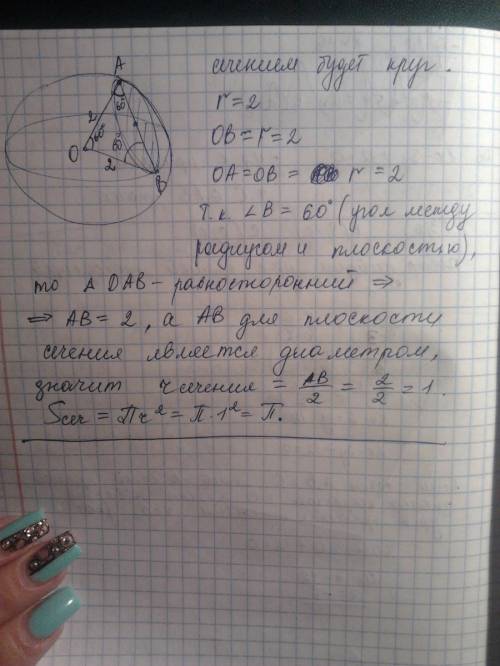 A
2
60°
60°
60°
O
2
B
сечением будет круг.
r=2
OB=r=2
OA=OB= r=2
Т.к. ∠B=60° (угол между
радиусом и плоскостью),
то Δ OAB-равносторонний ⇒
⇒ AB=2, а AB для плоскости
сечения является диаметром,
значит r сечения = AB/2 = 2/2 = 1.
Sсеч = Пr² = П·1² = П.